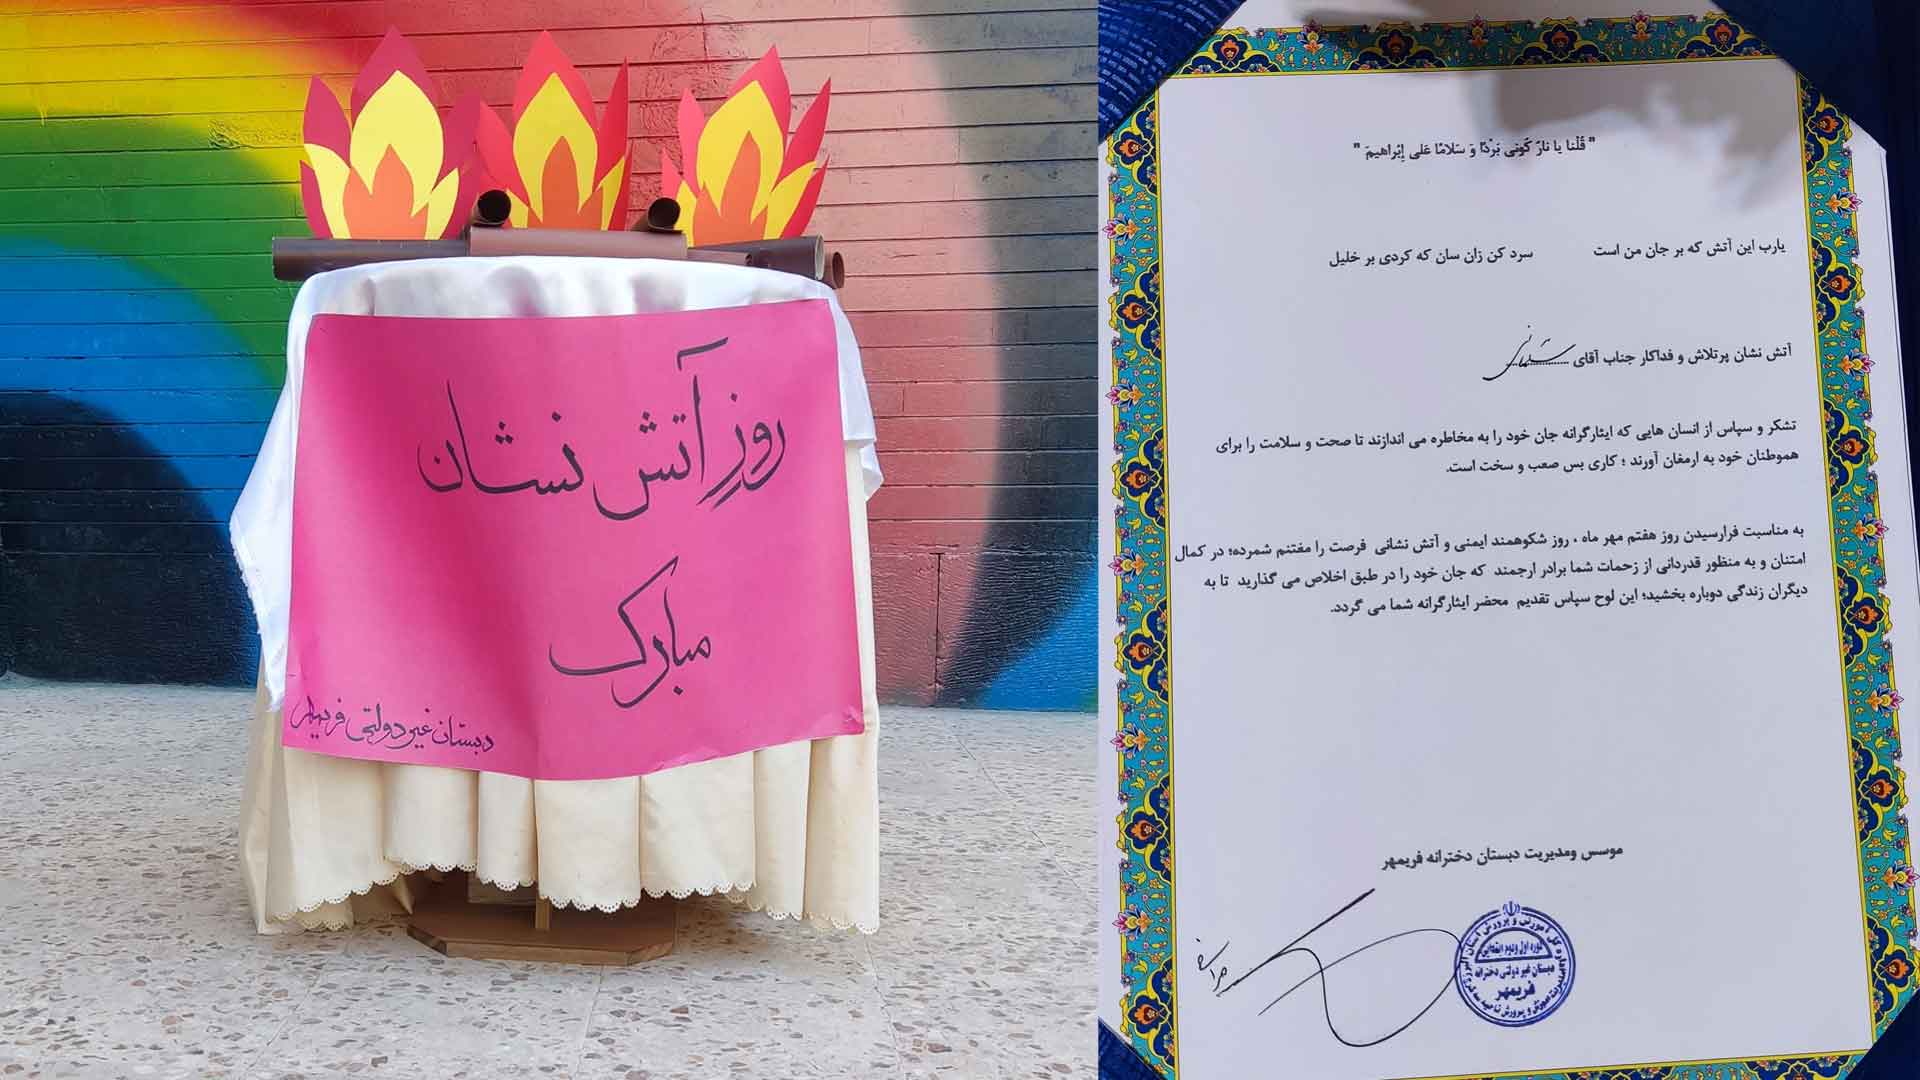 روزِ آتش نشان
مبارک
دبستان غیر دولتی فریمهر
" قُلْنا یا نارُ کُونی بَرْدًا وَ سَلامًا عَلی إِبْراهیمَ "
یارب این آتش که بر جان من است سرد کن زان سان که کردی بر خلیل
آتش نشان پرتلاش و فداکار جناب آقای
تشکر و سپاس از انسان هایی که ایثارگرانه جان خود را به مخاطره می اندازند تا صحت و سلامت را برای
هموطنان خود به ارمغان آورند ؛ کاری بس صعب و سخت است.
به مناسبت فرارسیدن روز هفتم مهر ماه ، روز شکوهمند ایمنی و آتش نشانی فرصت را مغتنم شمرده؛ در کمال
امتنان و به منظور قدردانی از زحمات شما برادر ارجمند که جان خود را در طبق اخلاص می گذارید تا به
دیگران زندگی دوباره بخشید؛ این لوح سپاس تقدیم محضر ایثارگرانه شما می گردد.
موسس ومدیریت دبستان دخترانه فریمهر
دوره اول ودوم ابتدایی
دبستان غیر دولتی دخترانه
فریمهر